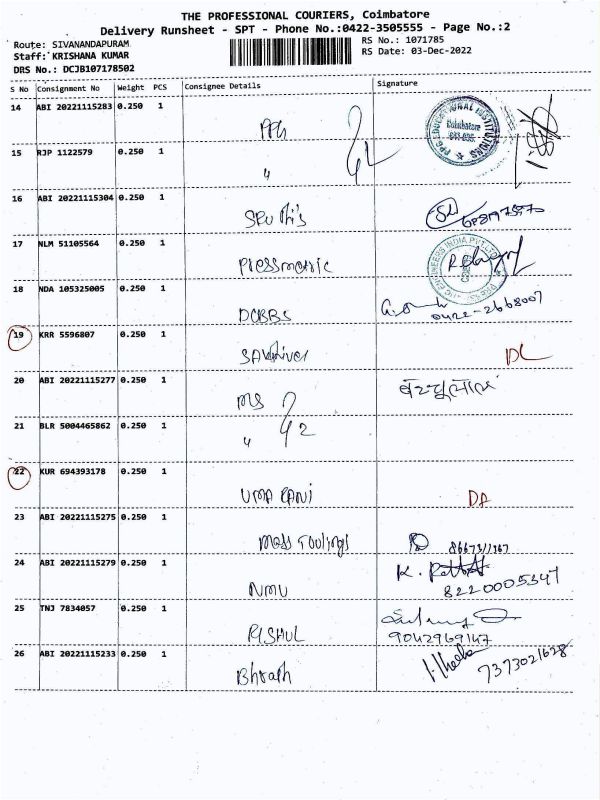 THE PROFESSIONAL COURIERS, Coimbatore
Delivery Runsheet - SPT - Phone No.:0422-3505555 - Page No.:2
Route: SIVANANDAPURAM
RS No.: 1071785
Staff: KRISHANA KUMAR
RS Date: 03-Dec-2022
DRS No.: DCJB107178502
S No Consignment No Weight PCS Consignee Details Signature
14 ABI 20221115283 0.250 1 PPG
PPG EDUCATIONAL INSTITUTIONS Coimbatore
15 RJP 1122579 0.250 1 "
16 ABI 20221115304 0.250 1 SRUthi's
17 NLM 51105564 0.250 1 Pressmatic
18 NDA 105325005 0.250 1 DCBBS 0422-2668007
19 KRR 5596807 0.250 1 SAkthivel DL
20 ABI 20221115277 0.250 1 MS
21 BLR 5004465862 0.250 1 "
22 KUR 694393178 0.250 1 UMA RANI DA
23 ABI 20221115275 0.250 1 Mass Toolings
24 ABI 20221115279 0.250 1 NMU 8220005347
25 TNJ 7834057 0.250 1 RISHUL 9042969147
26 ABI 20221115233 0.250 1 Bharath 7373021628